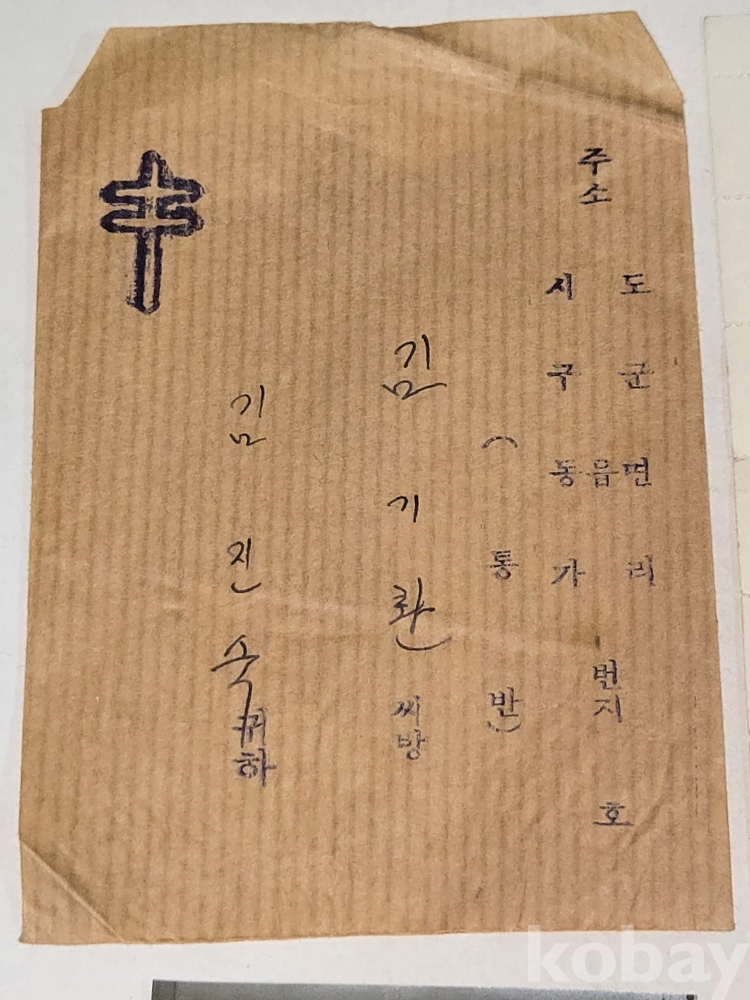 주소
도 군 면 리
읍 번지 호
시 구 동 가
( 통 반 )
김 기 환 씨방
김 진 숙 귀하
kobay